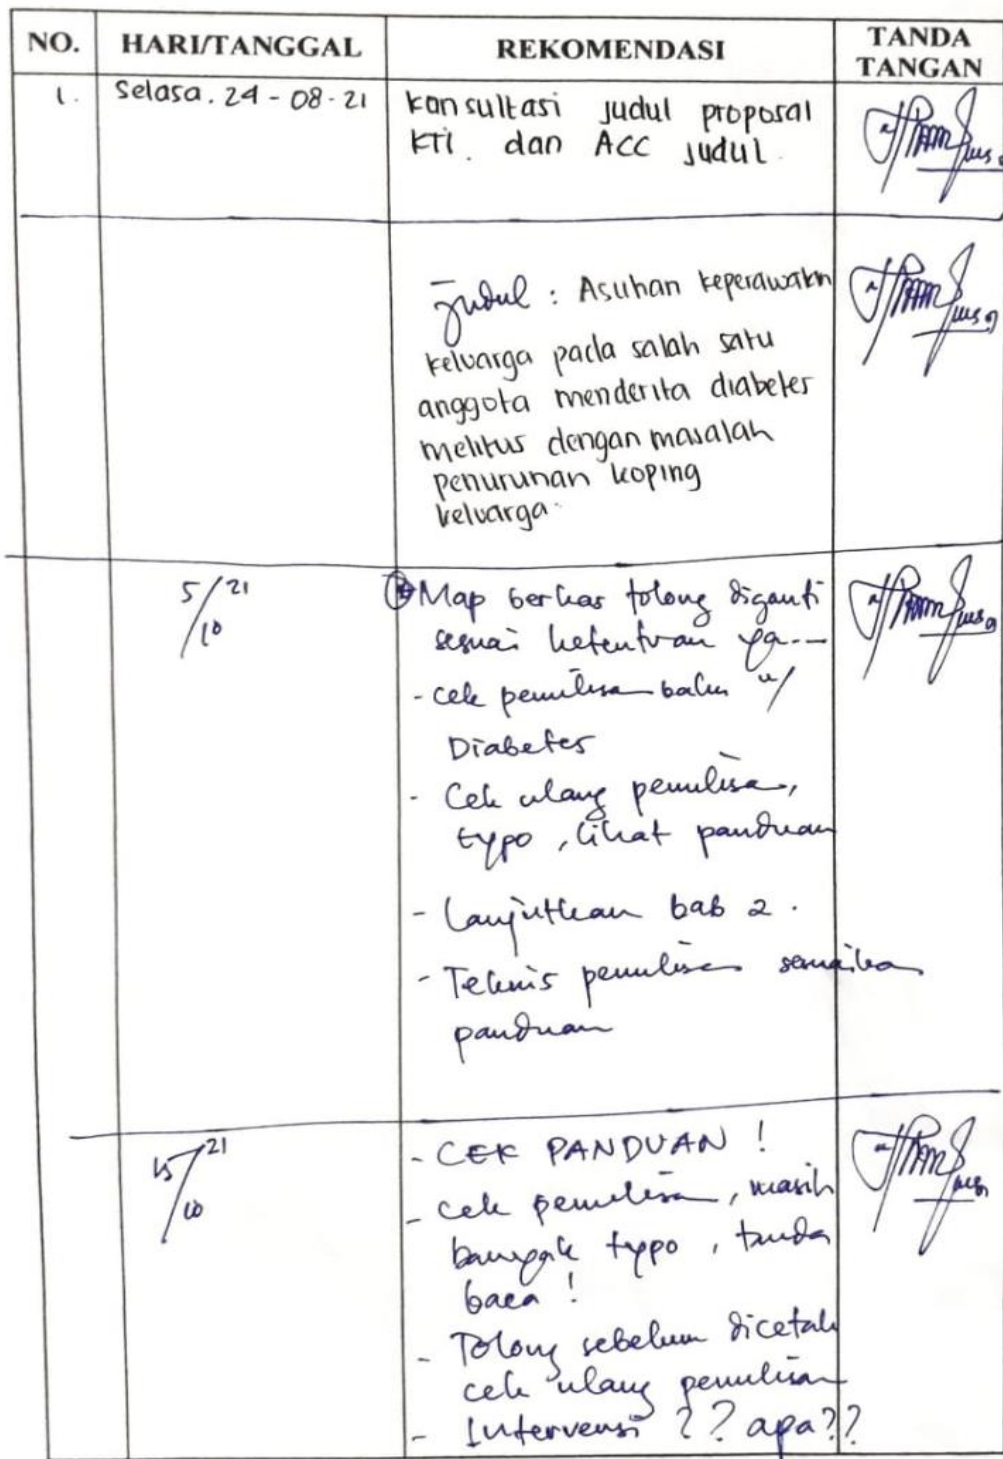 NO. HARI/TANGGAL REKOMENDASI TANDA TANGAN
1. Selasa. 24 - 08 - 21 Konsultasi judul proposal
KTI. dan ACC judul.
Judul : Asuhan keperawatn
keluarga pada salah satu
anggota menderita diabetes
melitus dengan masalah
penurunan koping
keluarga.
5/10 21 Map berkas tolong diganti
sesuai ketentuan ya---
- cek penulisan baku u/
Diabetes
- Cek ulang penulisan,
typo, lihat panduan
- Lanjutkan bab 2.
- Teknis penulisan sesuaikan
panduan
15/10 21 - CEK PANDUAN !
- cek penulisan, masih
banyak typo, tanda
baca !
- Tolong sebelum dicetak
cek ulang penulisan
- Intervensi ?? apa??